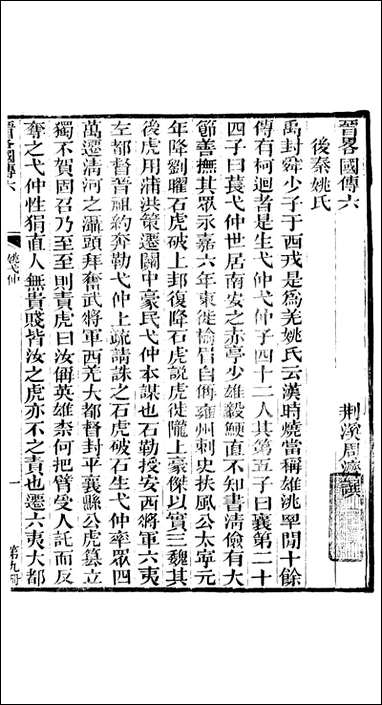 晉畧國傳六
荆溪周濟譔
後秦姚氏
禹封舜少子于西戎是爲羌姚氏云漢時燒當稱雄洮罕閒十餘
傳有柯迴者是生弋仲弋仲子四十二人其第五子曰襄第二十
四子曰萇弋仲世居南安之赤亭少雄毅鯁直不知書清儉有大
節善撫其眾永嘉六年東徙榆眉自偁雍州刺史扶風公太寧元
年降劉曜石虎破上邽復降石虎說虎徙隴上豪傑以實三魏其
後虎用蒲洪策遷關中豪民弋仲本謀也石勒授安西將軍六夷
左都督晉祖約奔勒弋仲上疏請誅之石虎破石生弋仲率眾四
萬遷清河之灄頭拜奮武將軍西羌大都督封平襄縣公虎篡立
獨不賀固召乃至至則責虎曰汝偁英雄柰何把臂受人託而反
奪之弋仲性狷直人無貴賤皆汝之虎亦不之責也遷六夷大都
晉畧國傳六
姚弋仲
一
第九冊